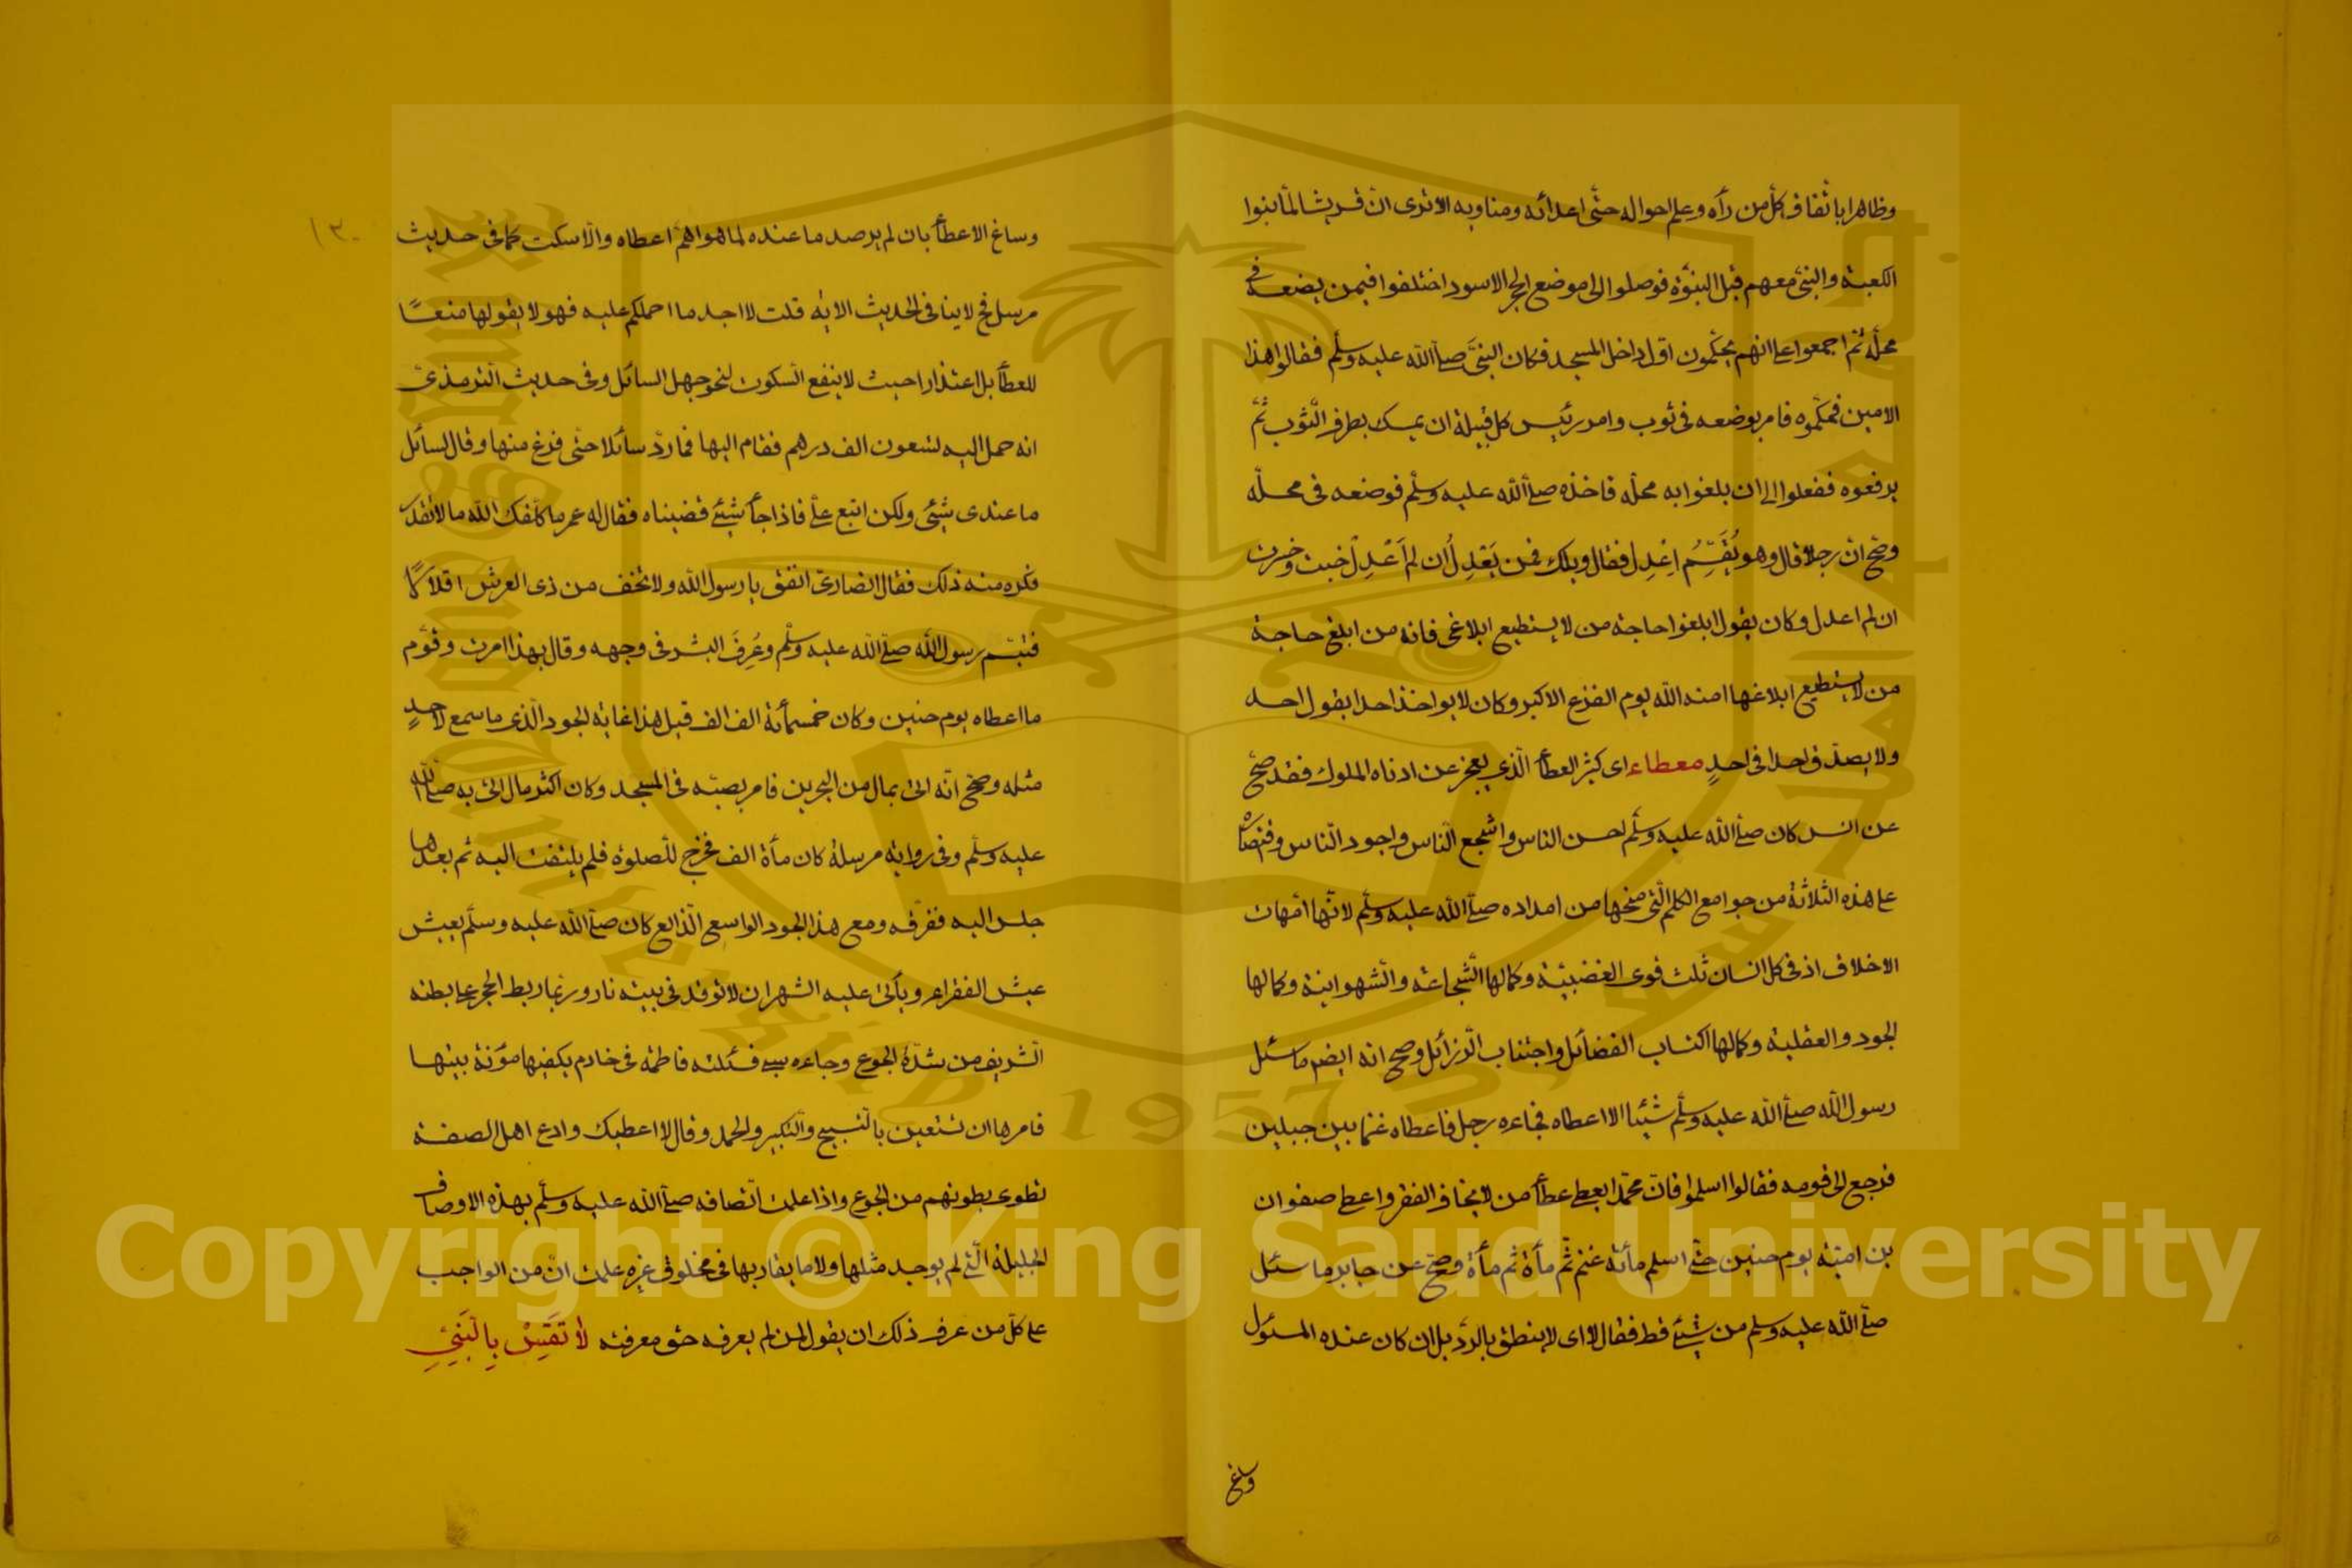 وظاهرا باتفاق كل من رأه وعلم احواله حتى اعدائه ومناويه الا ترى ان قريشا لما بنوا
الكعبة والنبى معهم قبل النبوة فوصلوا الى موضع الحجر الاسود اختلفوا فيمن يضعه فى
محله ثم اجمعوا على انهم يحكمون اول داخل المسجد فكان النبى صلى الله عليه وسلم فقالوا هذا
الامين فحكموه فامر بوضعه فى ثوب وامر رئيس كل قبيلة ان يمسك بطرف الثوب ثم
يرفعوه ففعلوا الى ان بلغوا به محله فاخذه صلى الله عليه وسلم فوضعه فى محله
وصح ان رجلا قال وهو يُقَسِّمُ اِعْدِل فقال ويلك فمن يَعْدِلُ ان لم اَعْدِلْ خبت وخسرت
ان لم اعدل وكان يقول ابلغوا حاجة من لا يستطيع ابلاغى فانه من ابلغ حاجة
من لا يستطيع ابلاغها امنه الله يوم الفزع الاكبر وكان لا يواخذ احدا بقول احد
ولا يصدق احدا فى احدٍ معطاء اى كثير العطأ الذى يعجز عن ادناه الملوك فقد صح
عن انس كان صلى الله عليه وسلم احسن الناس واشجع الناس واجود الناس
على هذه الثلاثة من جوامع الكلم التى منحها من امداده صلى الله عليه وسلم لانها امهات
الاخلاق اذ فى كل انسان ثلث قوى الغضبية وكمالها الشجاعة والشهوانية وكمالها
الجود والعقلية وكمالها اكتساب الفضائل واجتناب الرزائل وصح انه ايضم ما سئل
رسول الله صلى الله عليه وسلم شيئا الا اعطاه فجاءه رجل فاعطاه غنما بين جبلين
فرجع الى قومه فقالوا اسلموا فان محمدا يعطى عطأ من لا يخاف الفقر واعطى صفوان
بن امية يوم حنين حتى اسلم مائة غنم ثم مأة ثم مأة وصح عن جابر ما سئل
صلى الله عليه وسلم من شيئ قط فقال لا اى لا ينطق بالرد بل ان كان عنده المسئول
وساغ
١٣٠
وساغ الاعطأ بان لم يرصد ما عنده لما هو اهم اعطاه والا سكت كما فى حديث
مرسل فح لا ينافى الحديث الاية قلت لا اجد ما احملكم عليه فهو لا يقولها منعًا
للعطأ بل اعتذارا حيث لا ينفع السكون لنحو جهل السائل وفى حديث الترمذى
انه حمل اليه تسعون الف درهم فقام اليها فما رد سائلا حتى فرغ منها وقال لسائل
ما عندى شيئ ولكن اتبع على فاذا جأ شيئ قضيناه فقال له عمر ما كلفك الله ما لا تقدر
فكره منه ذلك فقال انصارى انفق يا رسول الله ولا تخف من ذى العرش اقلالًا
فتبسم رسول الله صلى الله عليه وسلم وعُرِفَ البشر فى وجهه وقال بهذا امرت وقوّم
ما اعطاه يوم حنين وكان خمسمأئة الف الف قيل هذا غاية الجود الذى ما سمع لاحدٍ
مثله وصح انه اتى بمال من البحرين فامر بصبّه فى المسجد وكان اكثر مال اتى به صلى الله
عليه وسلم وفى رواية مرسلة كان مأة الف فخرج للصلوة فلم يلتفت اليه ثم بعدها
جلس اليه ففرّقه ومع هذا الجود الواسع الذايع كان صلى الله عليه وسلم يعيش
عيش الفقراء ويأتى عليه الشهران لا توقد فى بيته نار وربما ربط الحجر على بطنه
الشريف من شدة الجوع وجاءه سبى فسئلته فاطمة فى خادم يكفيها مؤنة بيتها
فامرها ان تستعين بالتسبيح والتكبير والحمد وقال لا اعطيك وادع اهل الصفة
تطوى بطونهم من الجوع واذا علمت اتصافه صلى الله عليه وسلم بهذه الاوصاف
الجليلة التى لم يوجد مثلها ولا ما يقاربها فى مخلوق غيره علمت ان من الواجب
على كل من عرف ذلك ان يقول لمن لم يعرفه حق معرفته لا تَقِسْ بِالنَّبِيِّ
Copyright © King Saud University
1957